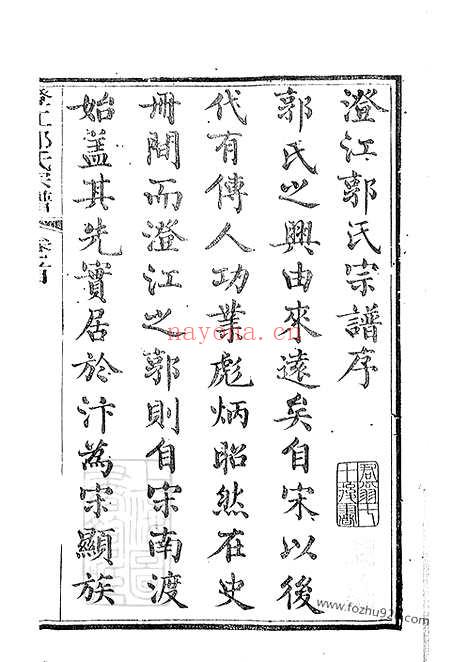 澄江郭氏宗譜序
郭氏之興由來遠矣自宋以後
代有傳人功業彪炳昭然在史
冊間而澄江之郭則自宋南渡
始蓋其先實居於汴為宋顯族
澄江郭氏宗譜
nayona.cn
www.fozhu920.com